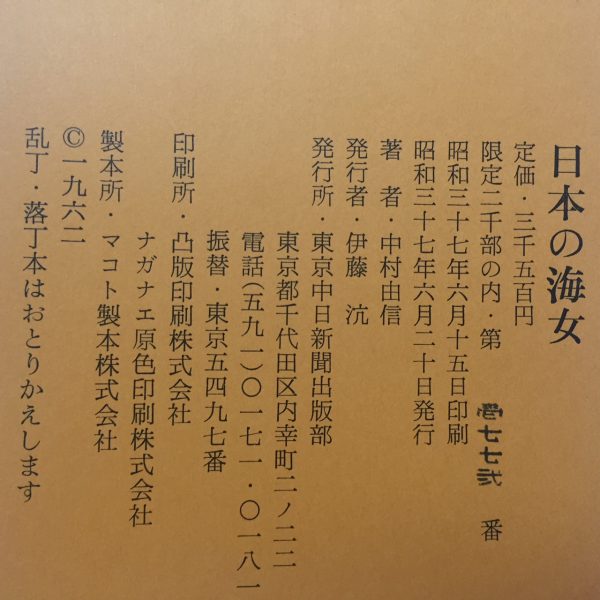 日本の海女
定価・三千五百円
限定二千部の内・第 壱七七弐 番
昭和三十七年六月十五日印刷
昭和三十七年六月二十日発行
著　者・中村由信
発行者・伊藤　沆
発行所・東京中日新聞出版部
東京都千代田区内幸町二ノ二二
電話(五九一)〇一七一・〇一八一
振替・東京五四九七番
印刷所・凸版印刷株式会社
ナガナエ原色印刷株式会社
製本所・マコト製本株式会社
©一九六二
乱丁・落丁本はおとりかえします